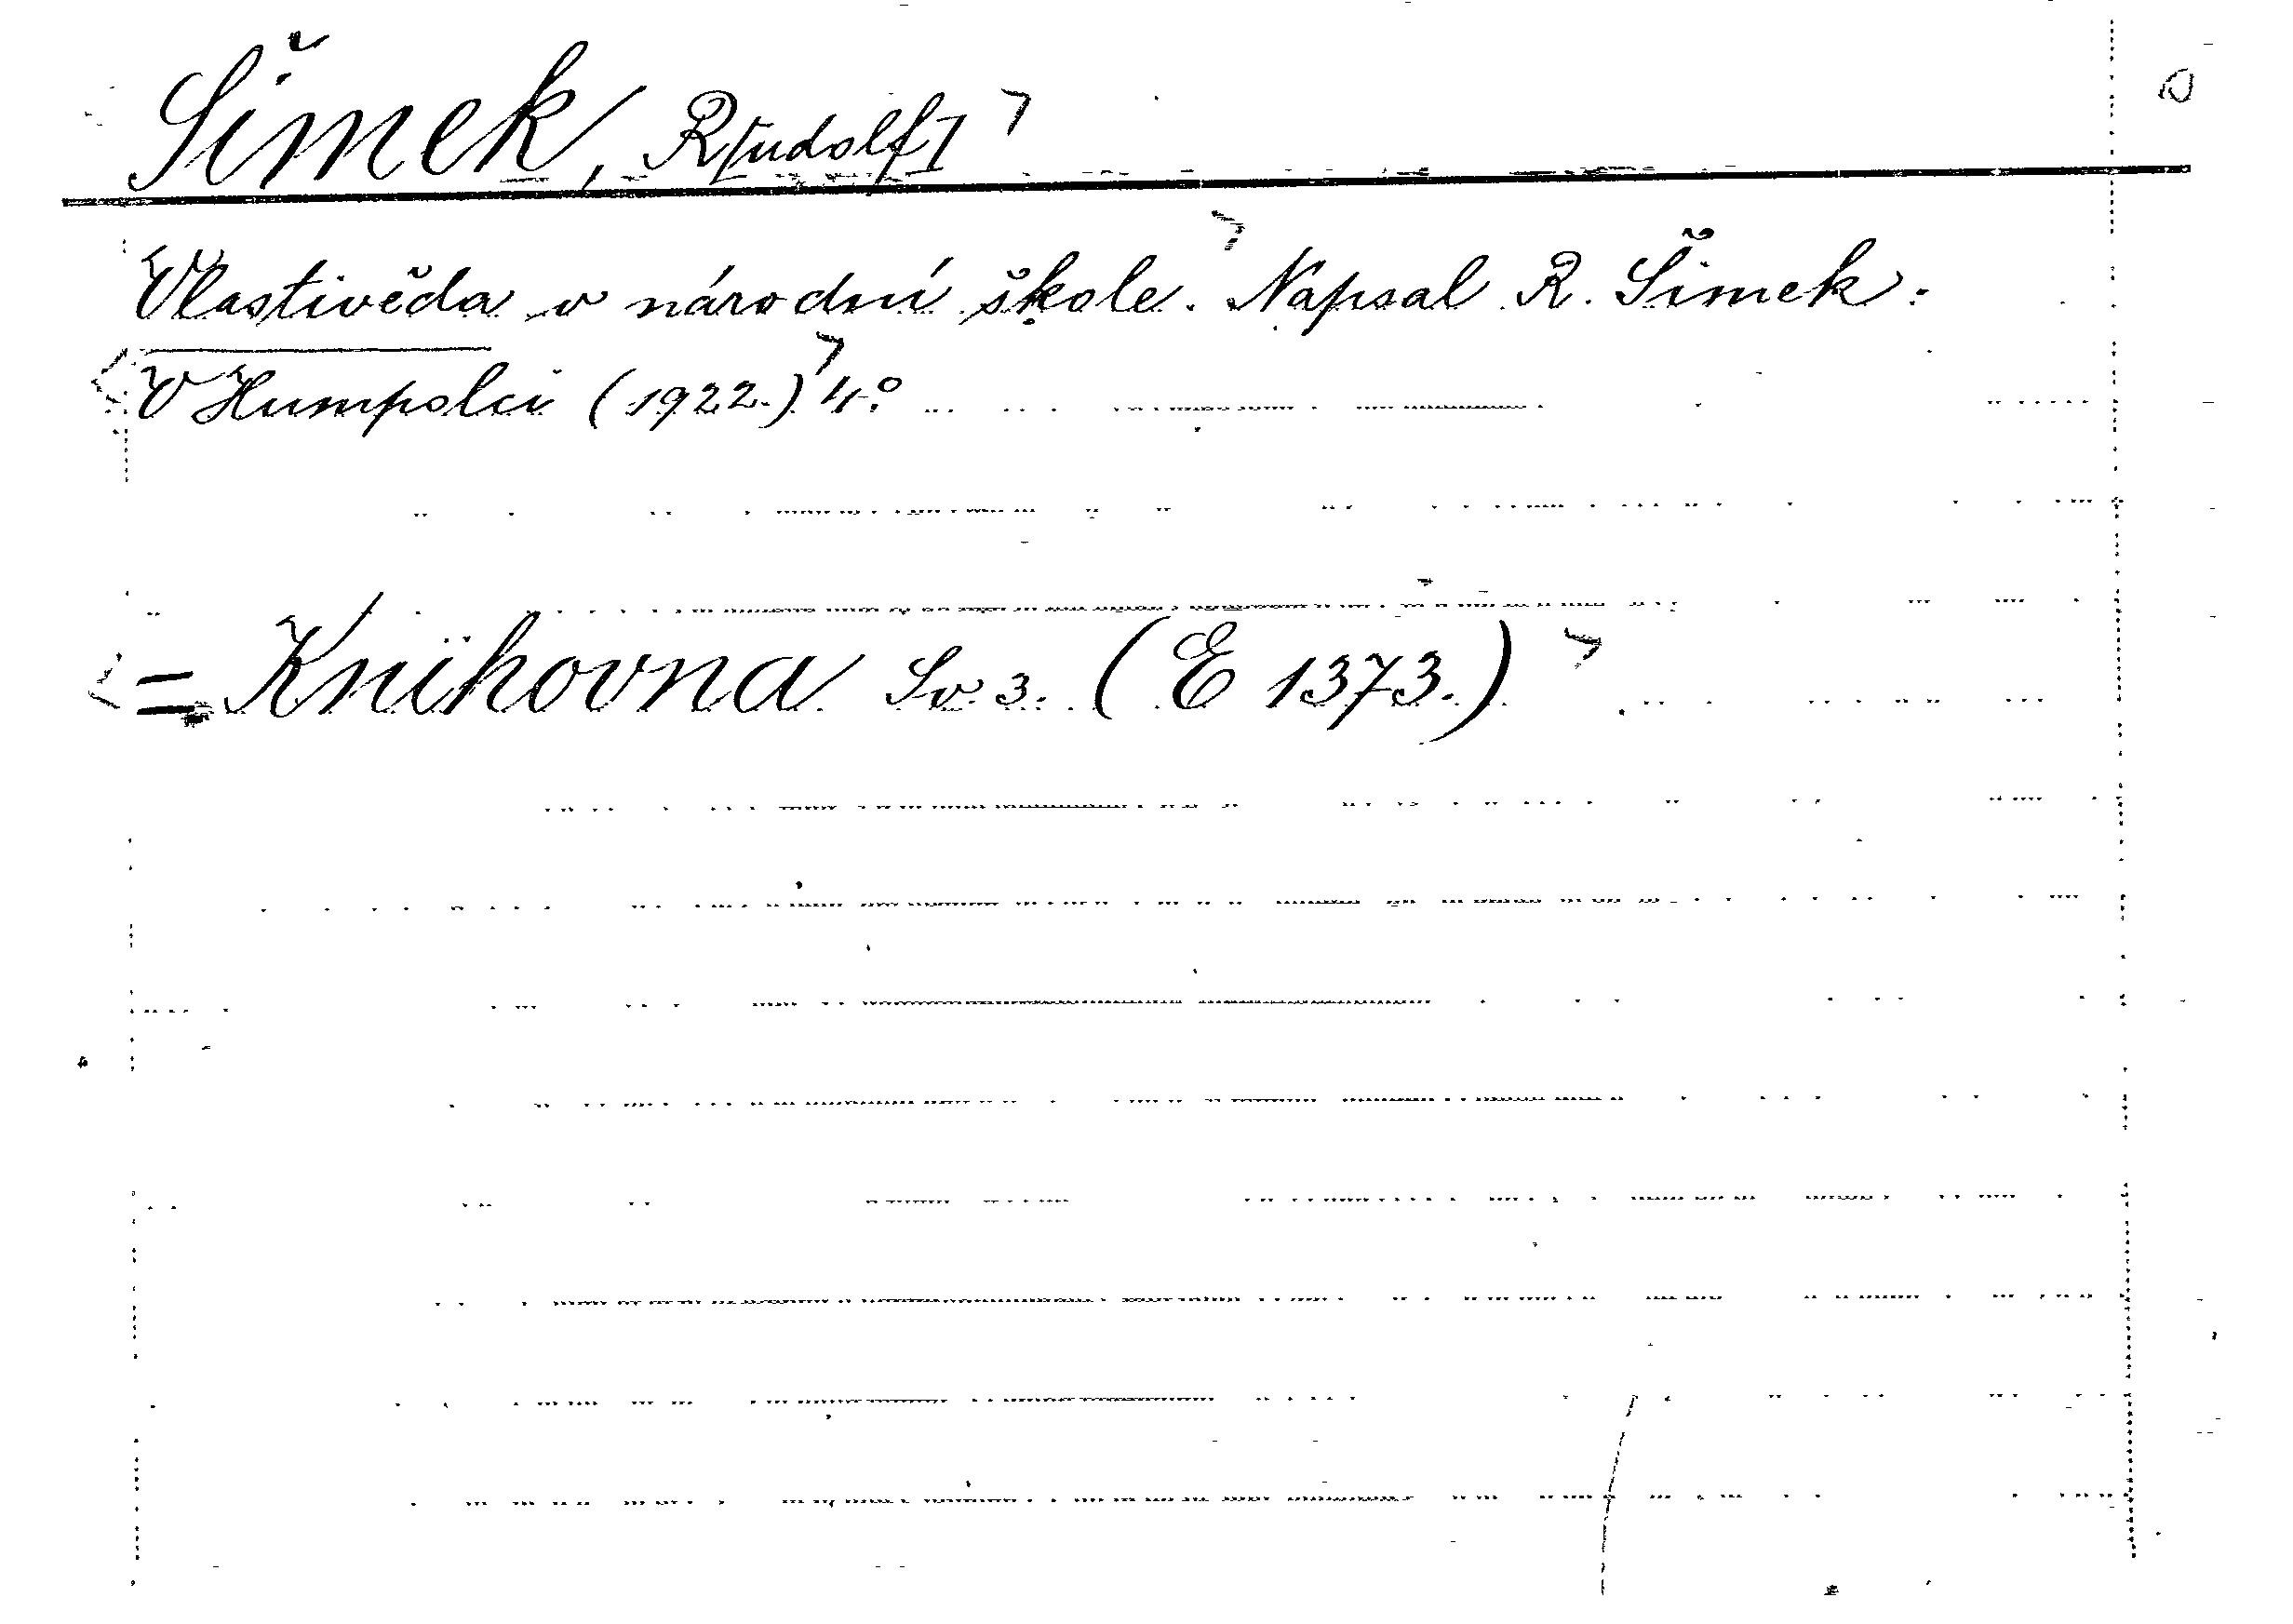 Šimek, R[udolf]
Vlastivěda v národní škole. Napsal R. Šimek.
V Humpolci (1922.) 4°.
= Knihovna Sv. 3. (E 1373.)